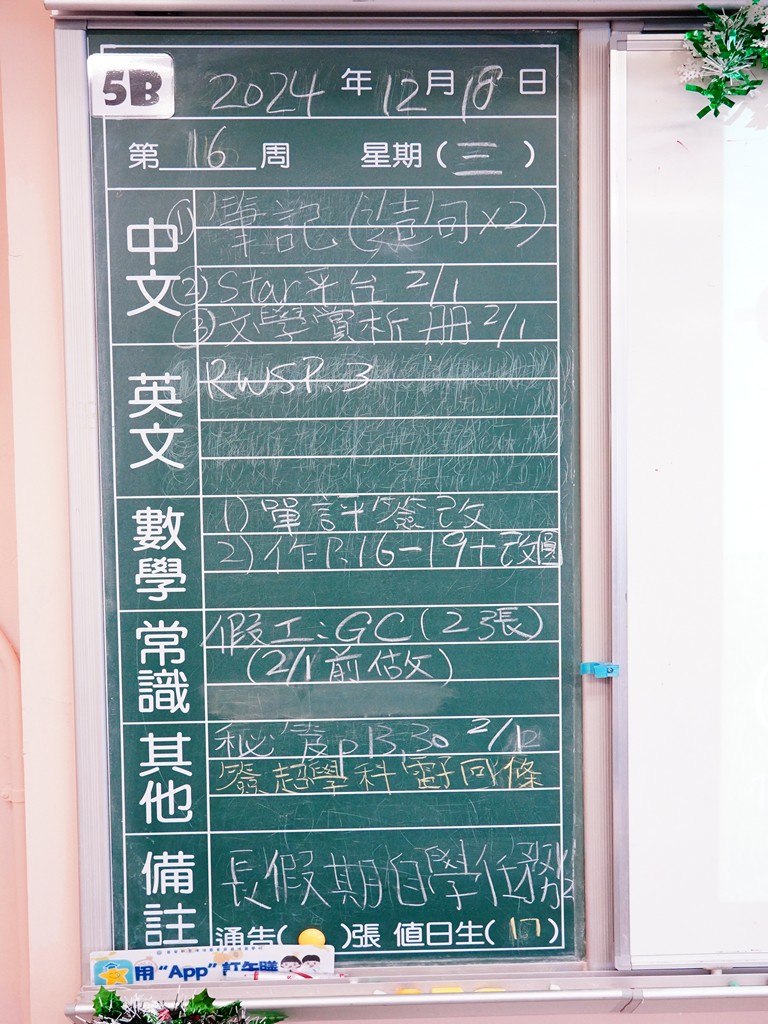 5B 2024年12月18日
第16周 星期(三)
中文
① 筆記(造句x2)
② Star平台 2/1
③ 文學賞析冊 2/1
英文
RWSP.3
數學
1) 單評簽改
2) 作P.16-19+改
常識
假工:GC(2張)
(2/1前做)
其他
p13,30
簽超學科電子回條
備註
長假期自學任務
通告( )張 值日生(17)
用“App”訂午膳